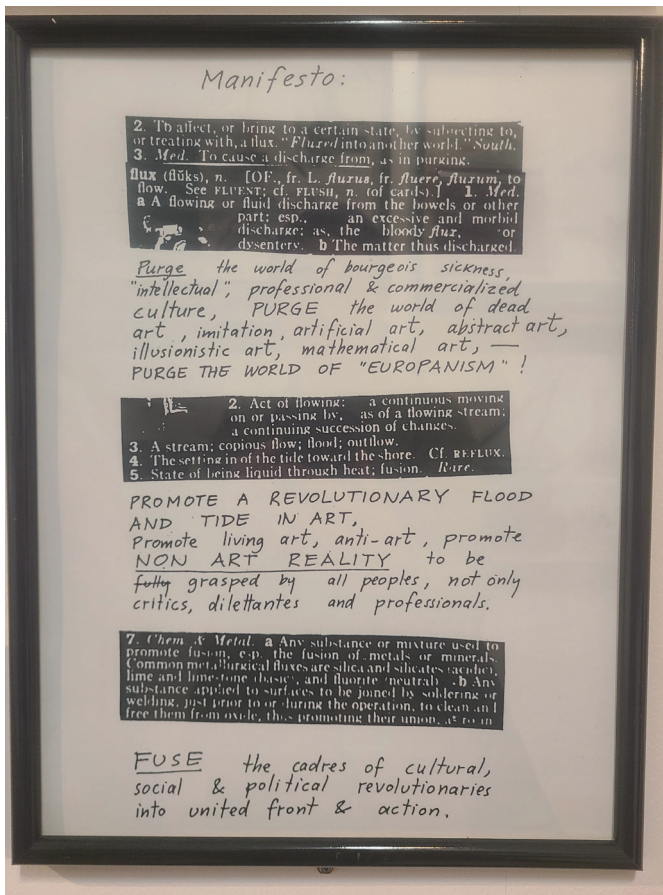 Manifesto:
2. To affect, or bring to a certain state, by subjecting to,
or treating with, a flux. "Fluxed into another world." South.
3. Med. To cause a discharge from, as in purging.
flux (flŭks), n. [OF., fr. L. fluxus, fr. fluere, fluxum, to
flow. See FLUENT; cf. FLUSH, n. (of cards).] 1. Med.
a A flowing or fluid discharge from the bowels or other
part; esp., an excessive and morbid
discharge; as, the bloody flux, or
dysentery. b The matter thus discharged.
Purge the world of bourgeois sickness,
"intellectual", professional & commercialized
culture, PURGE the world of dead
art, imitation, artificial art, abstract art,
illusionistic art, mathematical art, —
PURGE THE WORLD OF "EUROPANISM"!
2. Act of flowing: a continuous moving
on or passing by, as of a flowing stream;
a continuing succession of changes.
3. A stream; copious flow; flood; outflow.
4. The setting in of the tide toward the shore. Cf. REFLUX.
5. State of being liquid through heat; fusion. Rare.
PROMOTE A REVOLUTIONARY FLOOD
AND TIDE IN ART,
Promote living art, anti-art, promote
NON ART REALITY to be
fully grasped by all peoples, not only
critics, dilettantes and professionals.
7. Chem. & Metal. a Any substance or mixture used to
promote fusion, esp. the fusion of metals or minerals.
Common metallurgical fluxes are silica and silicates (acidic),
lime and limestone (basic), and fluorite (neutral). b Any
substance applied to surfaces to be joined by soldering or
welding, just prior to or during the operation, to clean and
free them from oxide, thus promoting their union, as rosin
FUSE the cadres of cultural,
social & political revolutionaries
into united front & action.